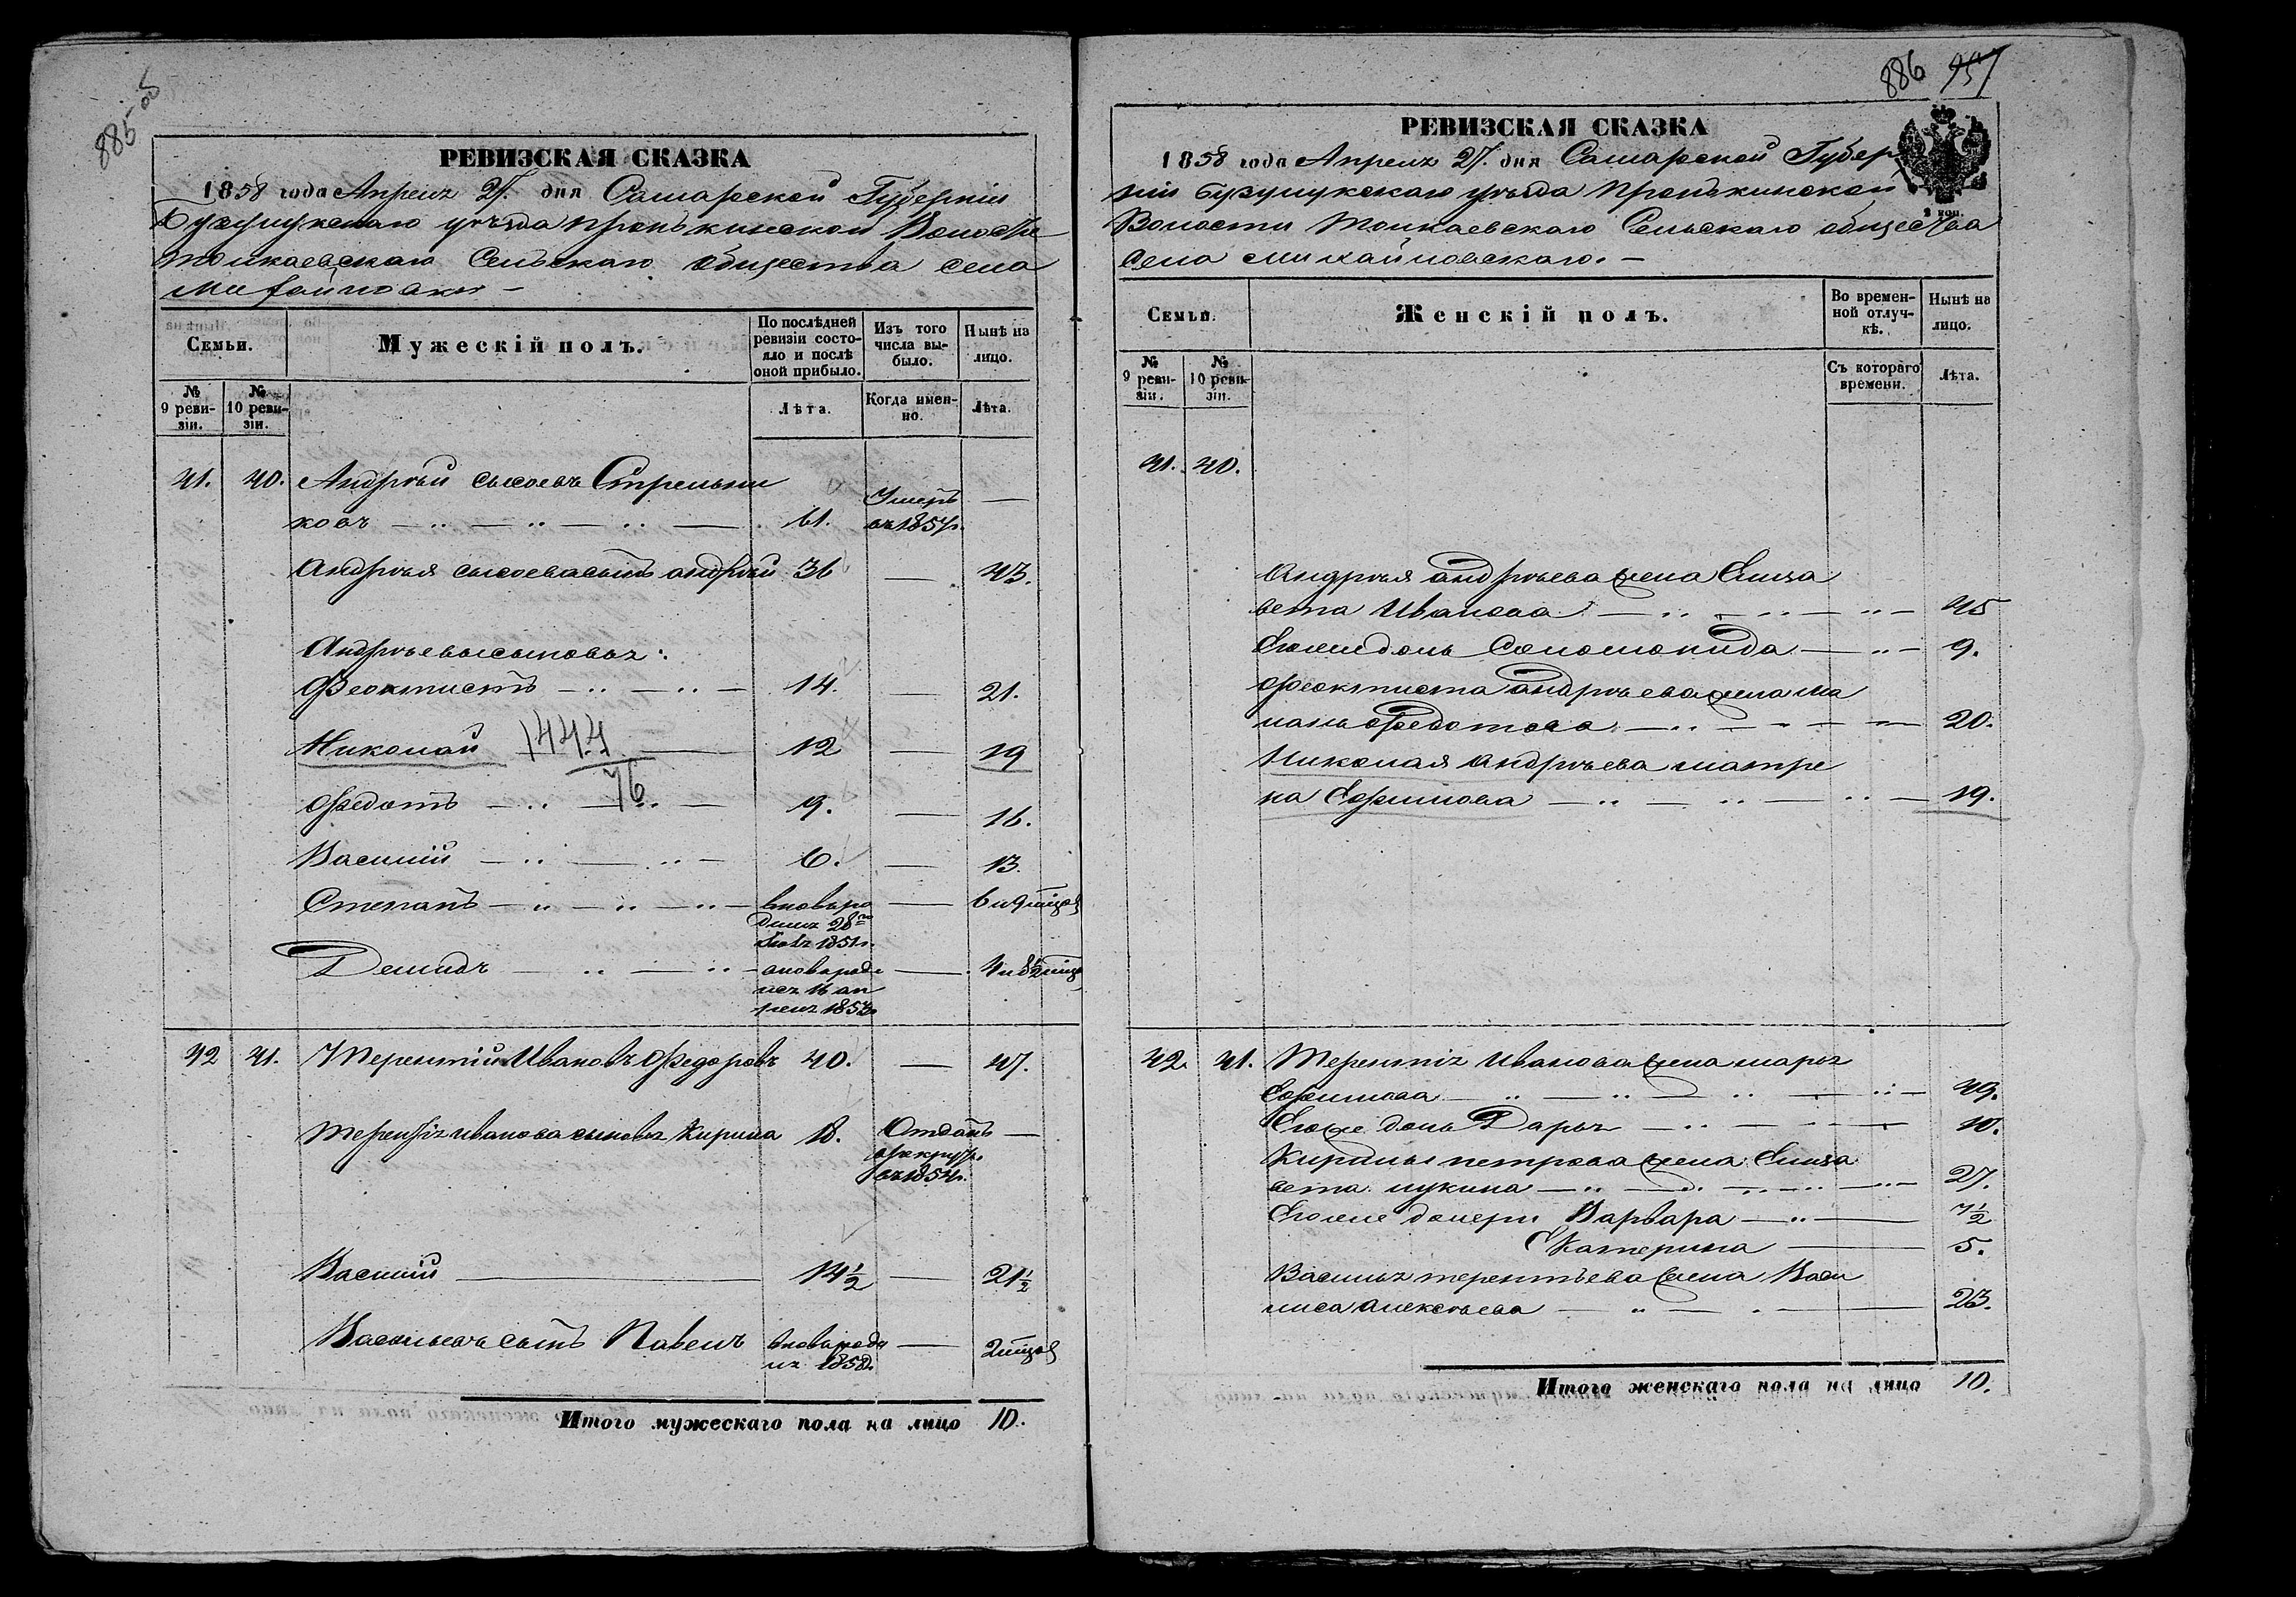 885 об
РЕВИЗСКАЯ СКАЗКА
1858 года Апреля 27. дня Самарской Губернiи
Бузулукскаго уѣзда Пронькинской Волости
Толкаевскаго Сельскаго общества села
Михайловки
Семьи.
Мужескiй полъ.
По послѣдней ревизiи состояло и послѣ оной прибыло.
Изъ того числа выбыло.
Нынѣ на лицо.
№ 9 ревизiи.
№ 10 ревизiи.
Лѣта.
Когда именно.
Лѣта.
41. 40. Андрѣй Сысоевъ Стрельни
ковъ 61. Умеръ въ 1857г. —
Андрѣя Сысоева сынъ Андрѣй 36 — 43.
Андрѣевы сыновья:
Феоктистъ 14. — 21.
Николай 1444 12 — 19
76
Федотъ 9. — 16.
Василiй 6. — 13.
Степанъ вновь ро — 6 и 9 мѣцов
дился 28го
1851г.
Демидъ вновь роди —
лся 16 ап
реля
42 41. Терентiй Ивановъ Федоровъ 40. — 47.
Терентiя Иванова сыновья Кирила 18. Отданъ —
въ рекруты
въ 1854г.
Василiй 14½ — 21½
Васильевъ сынъ Павелъ вновь роди — 2 мѣцов
лся 1858г.
Итого мужескаго пола на лицо 10.
886 957
РЕВИЗСКАЯ СКАЗКА
1858 года Апреля 27. дня Самарской Губер
нiи Бузулукскаго уѣзда Пронькинской
2 коп.
Волости Толкаевскаго Сельскаго общества
Села Михайловскаго. —
Семьи.
Женскiй полъ.
Во временной отлучкѣ.
Нынѣ на лицо.
№ 9 ревизiи.
№ 10 ревизiи.
Съ котораго времени.
Лѣта.
41. 40.
Андрѣя Андрѣева жена Елиза
вета Иванова 45
Ево же дочь Соломонида 9.
Феоктиста Андрѣева жена Ма
ланья Федотова 20.
Николая Андрѣева Матре
на Ефимова 19.
42. 41. Терентiя Иванова жена Марья
Ефимова 49.
Ево же дочь Дарья 10.
Кирилы Петрова жена Елиза
вета Лукина 27.
Ево же дочери Варвара 7½
Катерина 5.
Василья Терентьева жена Васи
лиса Алексѣева 23.
Итого женскаго пола на лицо 10.